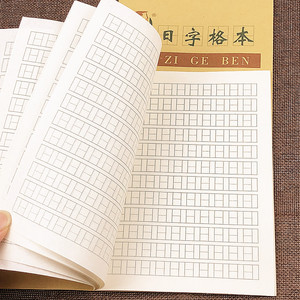 日字格本
ZI GE BEN